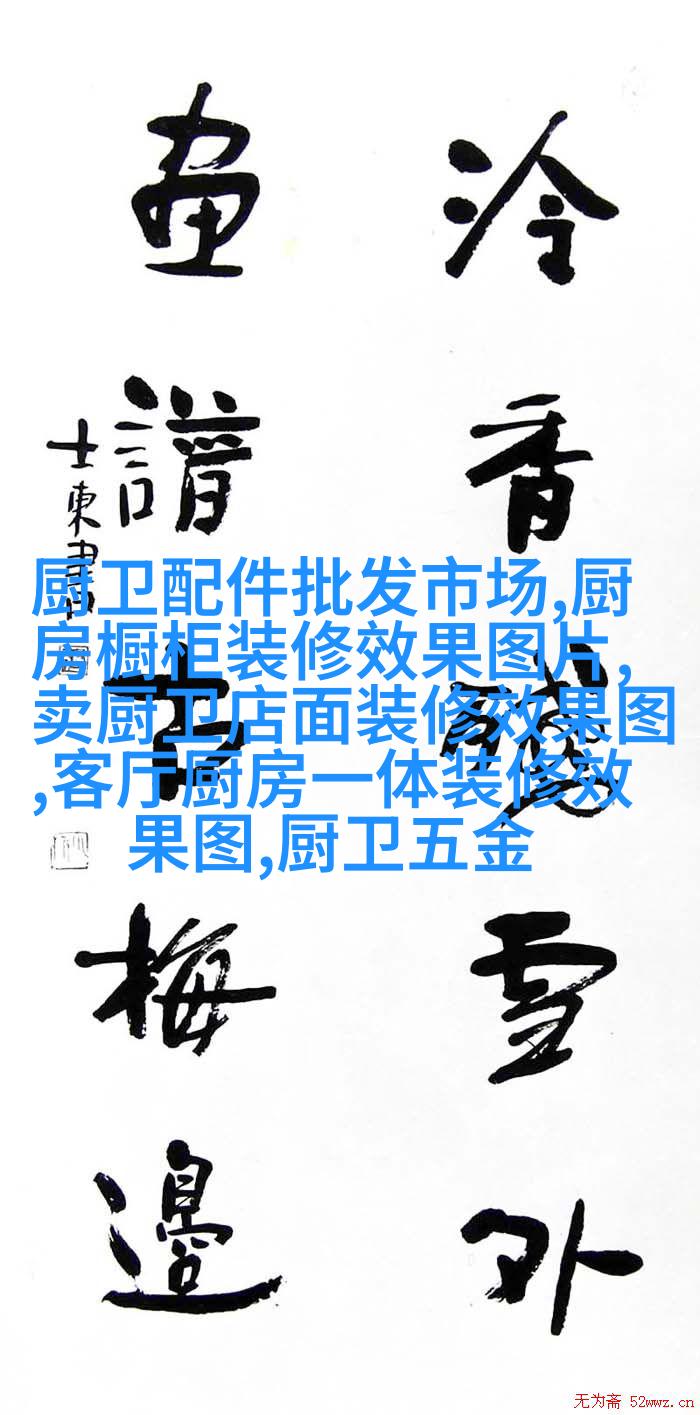 泠香
雪外
畫譜
梅邊
士東書
厨卫配件批发市场,厨
房橱柜装修效果图片,
卖厨卫店面装修效果图
,客厅厨房一体装修效
果图,厨卫五金
无为斋 52wwz.cn